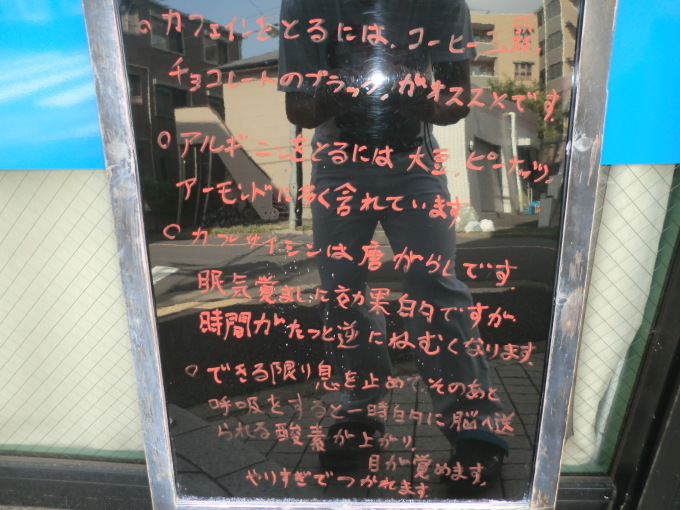 ○ カフェインをとるには、コーヒー玉露、
チョコレートのブラック、がオススメです
○ アルギニンをとるには 大豆、ピーナッツ、
アーモンドに多く含れています
○ カプサイシンは唐がらしです
眠気覚ましに効果的ですが
時間がたつと逆にねむくなります。
○ できる限り息を止めて、そのあと
呼吸をすると一時的に脳へ送
られる酸素が上がり、
目が覚めます。
やりすぎでつかれます。